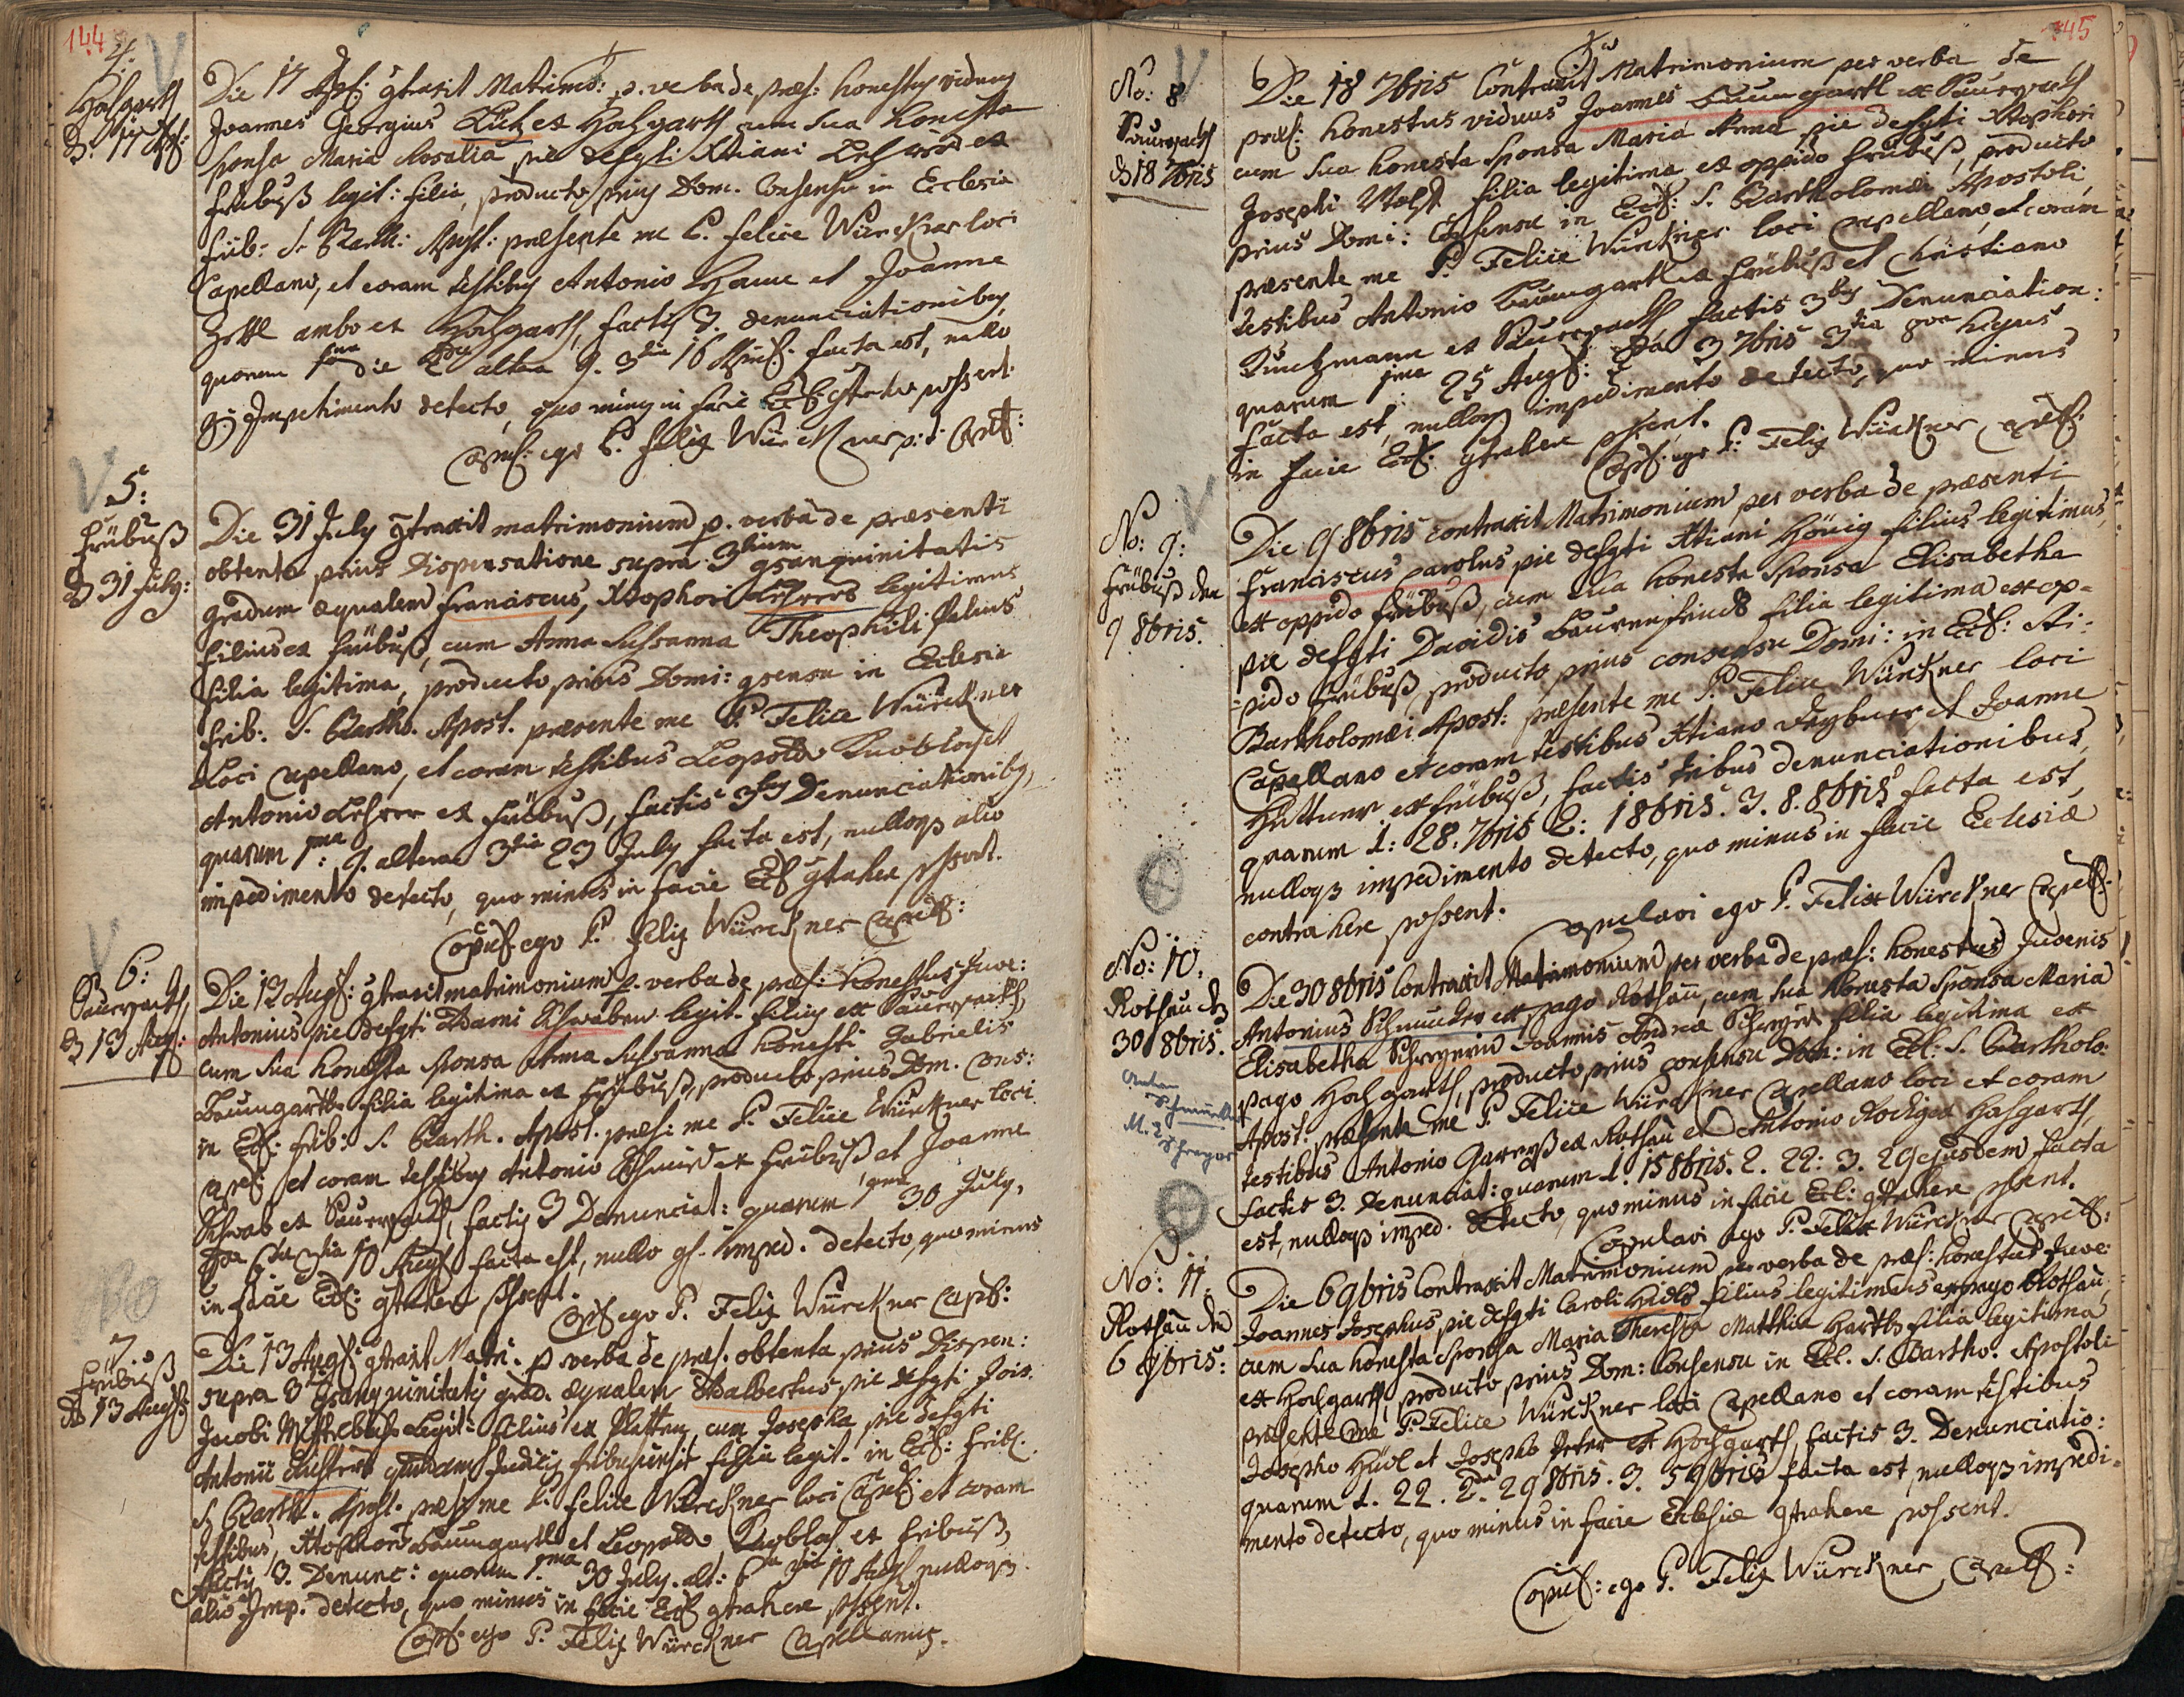 144
4.
Hohgarth
D. 17 Apr:
Die 17 Apr: gtraxit Matrimo: p. verba de præs: honestus viduus
Joannes Georgius Lutz ex Hohgarth cum sua honesta
sponsa Maria Rosalia pie defgti Xtiani
Fribuß legit: filia, producto prius Dom. Consensu in Ecclesia
frib: S. Barth: Apost: præsente me P. Felice Würckner loci
Capellano, et coram testibus Antonio et Joanne
ambo ex Hohgarth, factis 3. denunciationibus
quarum 1ma die altera 9. 3tia 16 facta est, nullo
Impedimento detecto, quo minus in facie Eccl: gtrahere possent.
Copul: ego P. Felix Würckner p:t: Capell:
5:
Frübuß
D 31 July:
Die 31 July gtraxit matrimonium p. verba de præsenti
obtenta prius Dispensatione supra 3tium gsanguinitatis
gradum æqualem Franciscus, Xtophori Lehrers legitimus
filius ex Frübuß, cum Anna Susanna Theophili
filia legitima, producto prius Domi: gsensu in Eclesia
frib: S. Bartho. Apost. præsente me P. Felice Würckner
Loci Capellano, et coram testibus Leopoldo Knobloch et
Antonio Lehrer ex Früb­uß, factis 3bus Denunciationibus,
quarum 1ma: 9. altera 3tia 23 July facta est, nulloqs alio
impedimento detecto, quo minus in facie Eccl gtrahere possent.
Copul: ego P. Felix Würckner Capell:
6:
Sauersack
D 13 Aug:
Die 13 Aug: gtraxit matrimonium p. verba de præs: honestus Juve:
Antonius pie defgti Adami Schwaben legit. filius ex Sauersack,
cum sua honesta sponsa Anna Susanna honesti Gabrielis
Baumgartls filia legitima ex Frübuß, producto prius Dom. Cons:
in Eccl: frib: S. Barth. Apost. præs: me P. Felice Würckner loci
Capel: et coram testibus Antonio Schmied ex Fribuß et Joanne
Schwab ex Sauersack, factis 3 Denunciat: quarum 1ma 30 July,
2da 6ta 3tia 10 Aug facta est, nullo gs. imped. detecto, quo minus
in facie Eccl: gtrahere possent.
Copul ego P. Felix Würckner Capl:
7.
Frübuß
D 13 Aug:
Die 13 Aug: gtraxit Matri. p verba de præs. obtenta prius Dispen:
supra 3tium gsanguinitatis grad. æqualem Adalbertus pie defgti Jois
Jacobi legit: filius ex Platten, cum Josepha pie defgti
Antonii quondam Judicis fribusiensis filia legit. in Eccl: frib:
S. Barth. Apost. præs: me P. Felice Würckner loci Capel: et coram
testibus, Xtophoro Baumgartl et Leopoldo Knobloch ex Fribuß,
factis 3. Denunc: quarum 1ma 30 July. alt: 6ta 3tia 10 Aug nulloqs
alio Imp. detecto, quo minus in facie Eccl gtrahere possent.
Copul: ego P. Felix Würckner Capellanus.
145
No: 8
Sauersack
D 18 7bris
Die 18 7bris Contraxit Matrimonium per verba de
præs: honestus viduus Joannes Baumgartl ex Sauersack
cum sua honesta Sponsa Maria Anna pie defgti Xtophori
Josephi filia legitima ex oppido Frübuß, producto
prius Domi: Consensu in Eccl: S. Bartholomæi Apostoli,
præsente me P. Felice Würckner loci Capellano, et coram
testibus Antonio Baumgartl ex Frübuß et Christiano
Kuntzmann ex Sauersack, factis 3bus Denunciation:
quarum 1ma: 25 Aug: 2da 3 7bris 3tia 8va hujus
facta est, nulloqs impedimento detecto, quo minus
in facie Eccl: gtrahere possent.
Copul: ego P. Felix Würckner, Capell:
No: 9:
Frübuß den
9 8bris.
Die 9 8bris contraxit Matrimonium per verba de præsenti
Franciscus Carolus pie defgti Xtiani Hönig filius legitimus,
ex oppido Frübuß, cum sua honesta Sponsa Elisabetha
pie defgti Davidis Baurenfeinds filia legitima ex op-
pido Frübuß, producto prius consensu Domi: in Eccl: Sti:
Bartholomæi Apost: præsente me P. Felice Würckner loci
Capellano et coram testibus Xtiano et Joanne
Huttner ex Frübuß, factis tribus denunciationibus,
quarum 1: 28. 7bris 2: 1 8bris. 3. 8. 8bris facta est,
nulloqs impedimento detecto, quo minus in facie Eclesiæ
contrahere possent.
Copulavi ego P. Felix Würckner Capell:
No: 10.
Rothau D
30 8bris.
Anton
Schmucker
M. E.
Die 30 8bris Contraxit Matrimonium per verba de præs: honestus Juvenis
Antonius Schmucker ex pago Rothau, cum sua honesta Sponsa Maria
Elisabetha Joannis Andreæ filia legitima ex
pago Hochgarth, producto prius consensu Dom: in Ecl: S. Bartholo:
Apost. præsente me P. Felice Würckner Capellano loci et coram
testibus Antonio ex Rothau et Antonio Hohgarth
factis 3. Denunciat: quarum 1. 15 8bris. 2. 22: 3. 29 ejusdem facta
est, nulloqs imped. detecto, quo minus in facie Ecl: gtrahere possent.
Copulavi ego P. Felix Würckner Capell:
No: 11.
Rothau den
6 9bris:
Die 6 9bris Contraxit Matrimonium per verba de præs: honestus Juve:
Joannes Josephus, pie defgti Caroli filius legitimus ex pago Rothau,
cum sua honesta Sponsa Maria Theresia Matthiæ Hartls filia legitima
ex Hochgarth, producto prius Dom: Consensu in Ecl. S. Bartho. Apostoli
præsente me P. Felice Würckner loci Capellano et coram testibus
Josepho et Josepho Peter ex Hochgarth, factis 3. Denunciatio:
quarum 1. 22. 2da. 29 8bris. 3. 5 9bris facta est nulloqs impedi-
mento detecto, quo minus in facie Eclesiæ gtrahere possent.
Copul: ego P. Felix Würckner Capell: